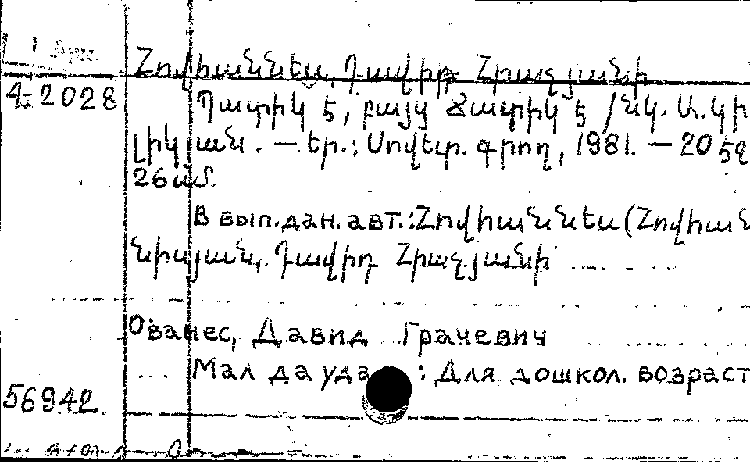 Հովհաննես, Դավիթ Հրաչյանի
4-2028
Պստիկ է, բայց ճստիկ է /նկ. Ա. Կի
լիկյան. — Եր.: Սովետ. գրող, 1981. — 20 էջ
26 սմ.
В вып. дан. авт.: Հովհաննես (Հովհան
նիսյան, Դավիթ Հրաչյանի
Ованес, Давид Грачевич
Мал да уда : Для дошкол. возраст
56942.